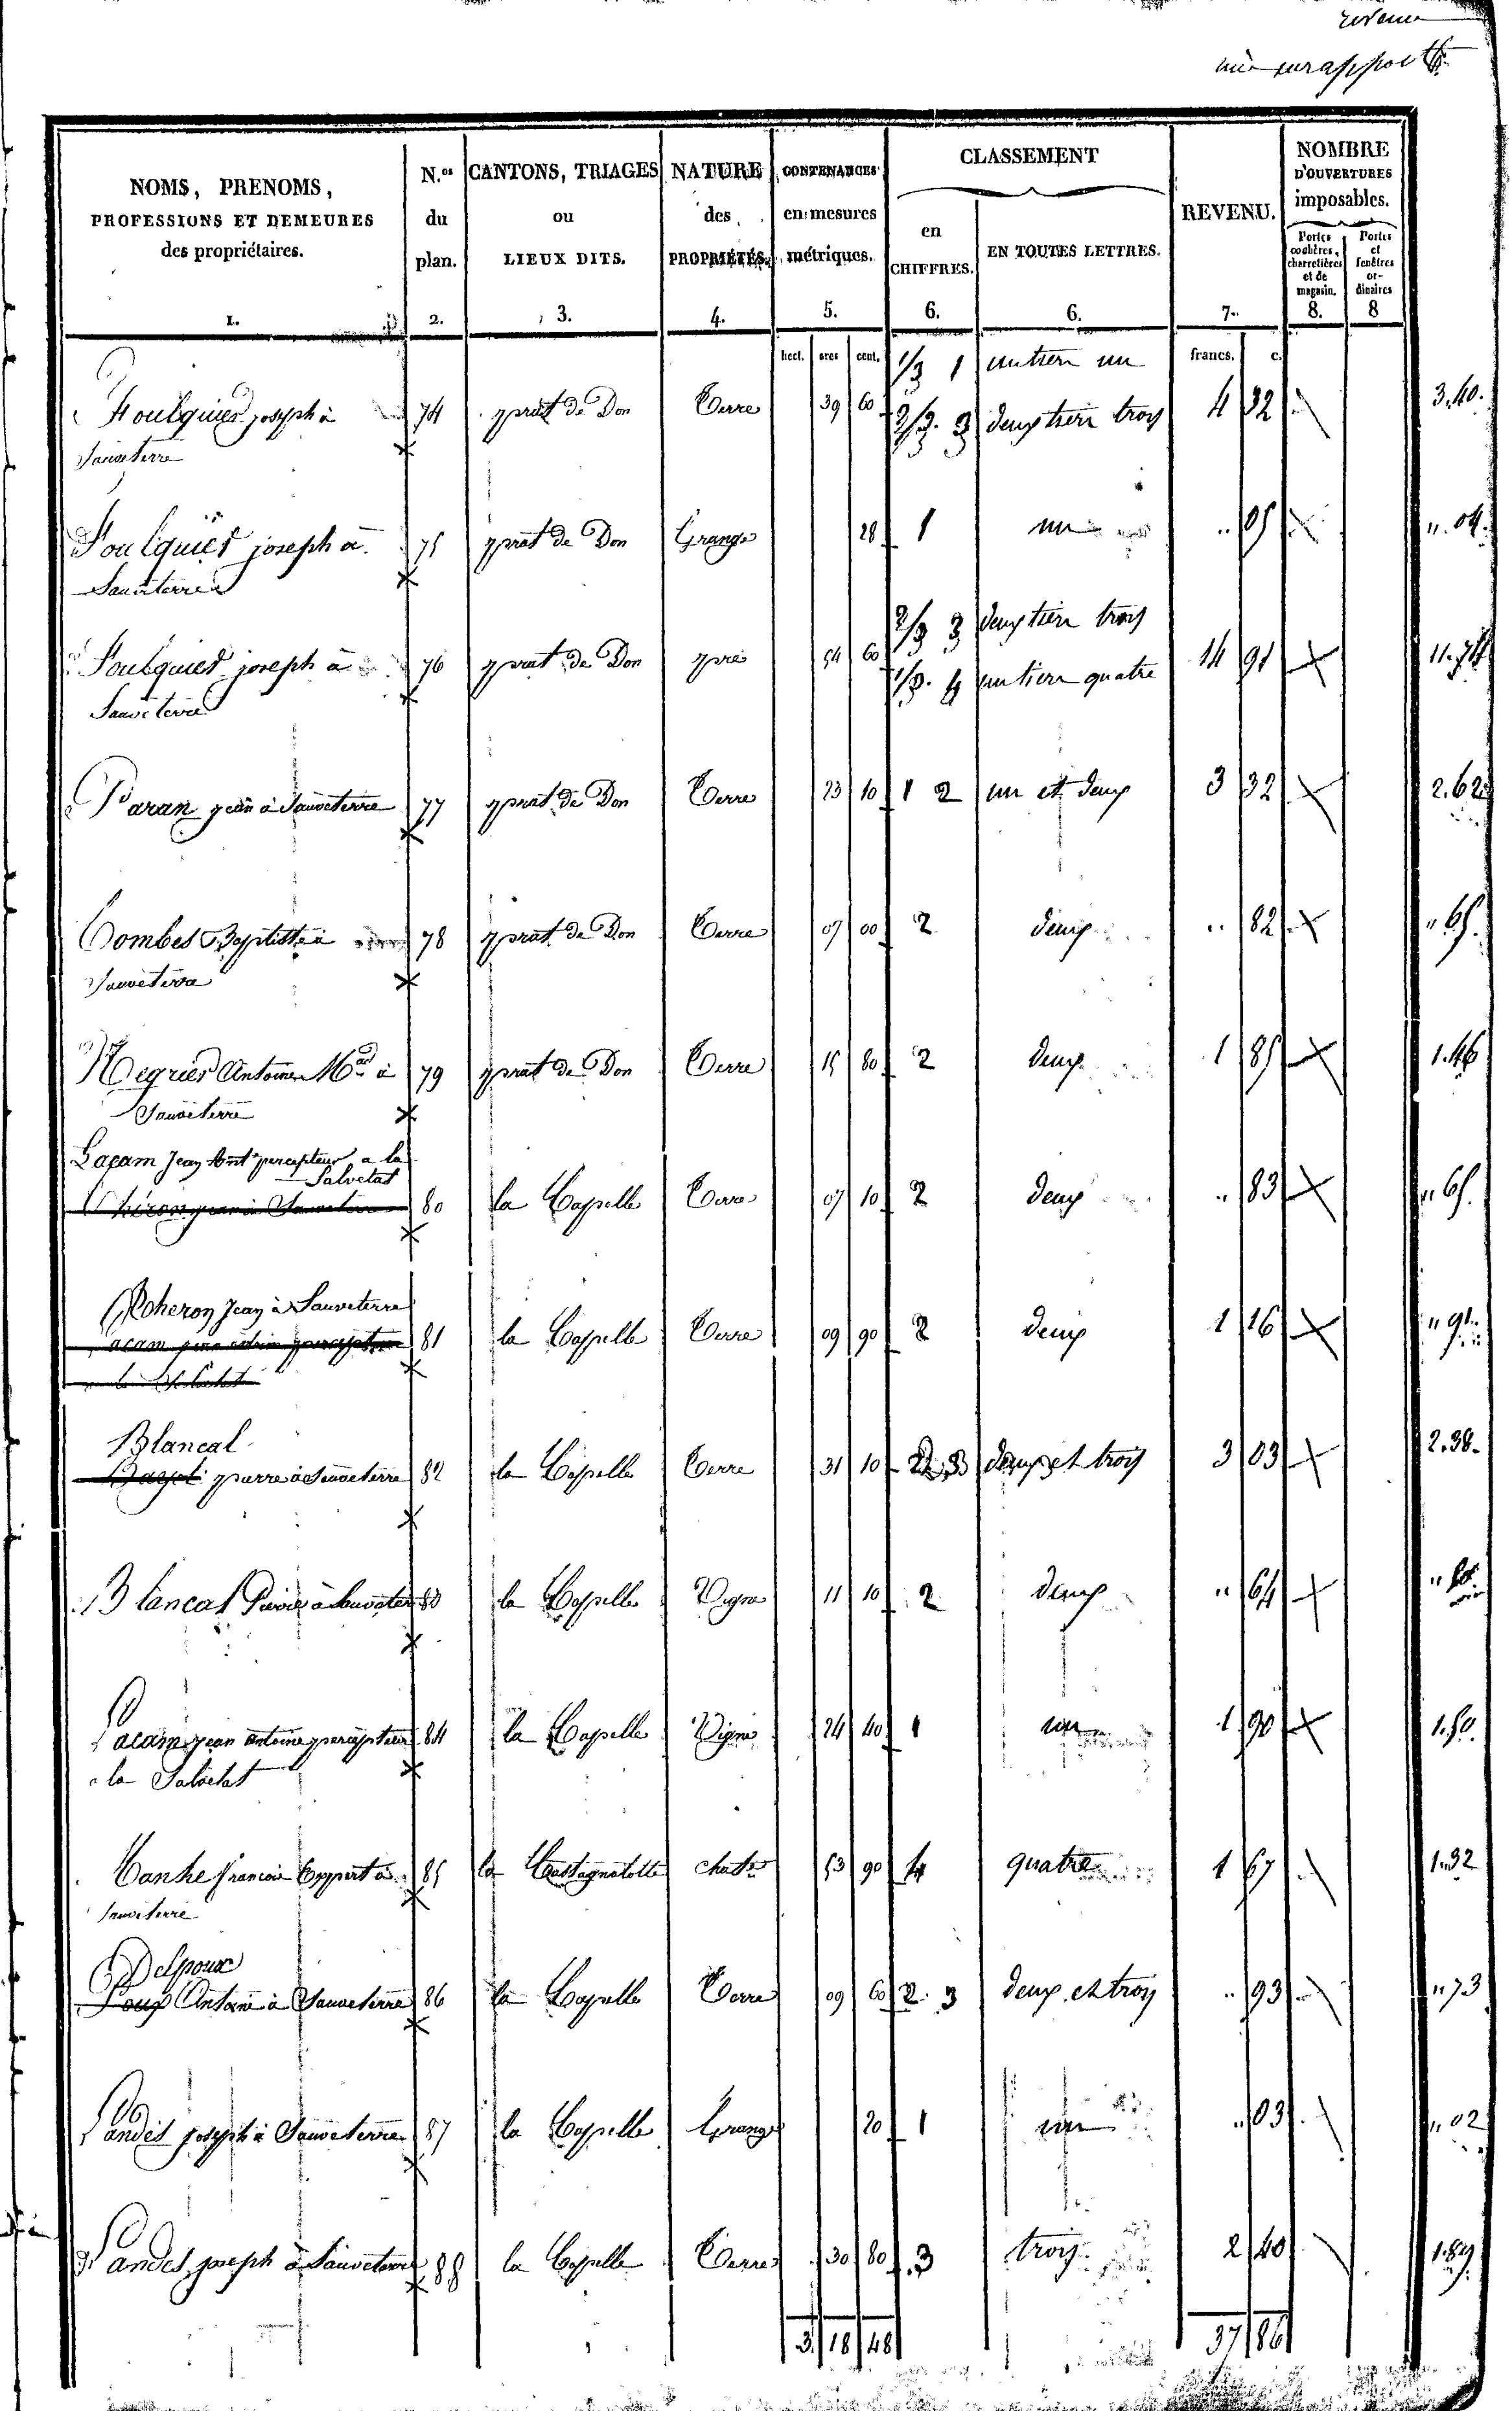 revenu
NOMS, PRENOMS,
PROFESSIONS ET DEMEURES
des propriétaires.
1.
N.os
du
plan.
2.
CANTONS, TRIAGES
ou
LIEUX DITS.
3.
NATURE
des
PROPRIÉTÉS.
4.
CONTENANCES
en mesures
métriques.
5.
hect. ares cent.
CLASSEMENT
en
CHIFFRES.
6.
EN TOUTES LETTRES.
6.
REVENU.
7.
francs. c.
NOMBRE
D'OUVERTURES
imposables.
Portes cochères, charretières et de magasin.
8.
Portes et fenêtres ordinaires
8
1/3 1 un tiers un
Foulquier joseph à 74 prat de Don Terre 39 60 2/3. 3 deux tiers trois 4 32 3.40.
Sauveterre
Foulquier joseph à 75 prat de Don Grange 28 1 un .. 05 ". 04.
Sauveterre
2/3 3 deux tiers trois
Foulquier joseph à 76 prat de Don pré 54 60 1/3. 4 un tiers quatre 14 91 11.74
Sauveterre
Paran jean à Sauveterre 77 prat de Don Terre 23 10 1 2 un et deux 3 32 2.62
Combes Baptiste à 78 prat de Don Terre 07 00 2 deux .. 82 " 65.
Sauveterre
Negrier Antoine Md à 79 prat de Don Terre 15 80 2 deux 1 85 1.46
Sauveterre
Lacam Jean Ant percepteur a la
Salvetat
80 la Capelle Terre 07 10 2 deux .. 83 " 65.
Cheron Jean à Sauveterre
81 la Capelle Terre 09 90 2 deux 1 16 " 91.
Blancal
pierre à Sauveterre 82 la Capelle Terre 31 10 2. 3 deux et trois 3 03 2.38.
Blancal Pierre à Sauveter 83 la Capelle Vigne 11 10 2 deux .. 64
Lacam jean antoine percepteur 84 la Capelle Vigne 24 40 1 un 1 90 1.50.
à la Salvetat
Canhe francois Expert à 85 la Castagnatolle chat. 53 90 4 quatre 1 67 1.32
Sauveterre
Delpoux
Antoine à Sauveterre 86 la Capelle Terre 09 60 2. 3 deux et trois .. 93 " 73
Landes joseph à Sauveterre 87 la Capelle Grange 20 1 un .. 03 ". 02
Landes joseph à Sauveterre 88 la Capelle Terre 30 80 3 trois 2 40 1.89.
3 18 48 37 86